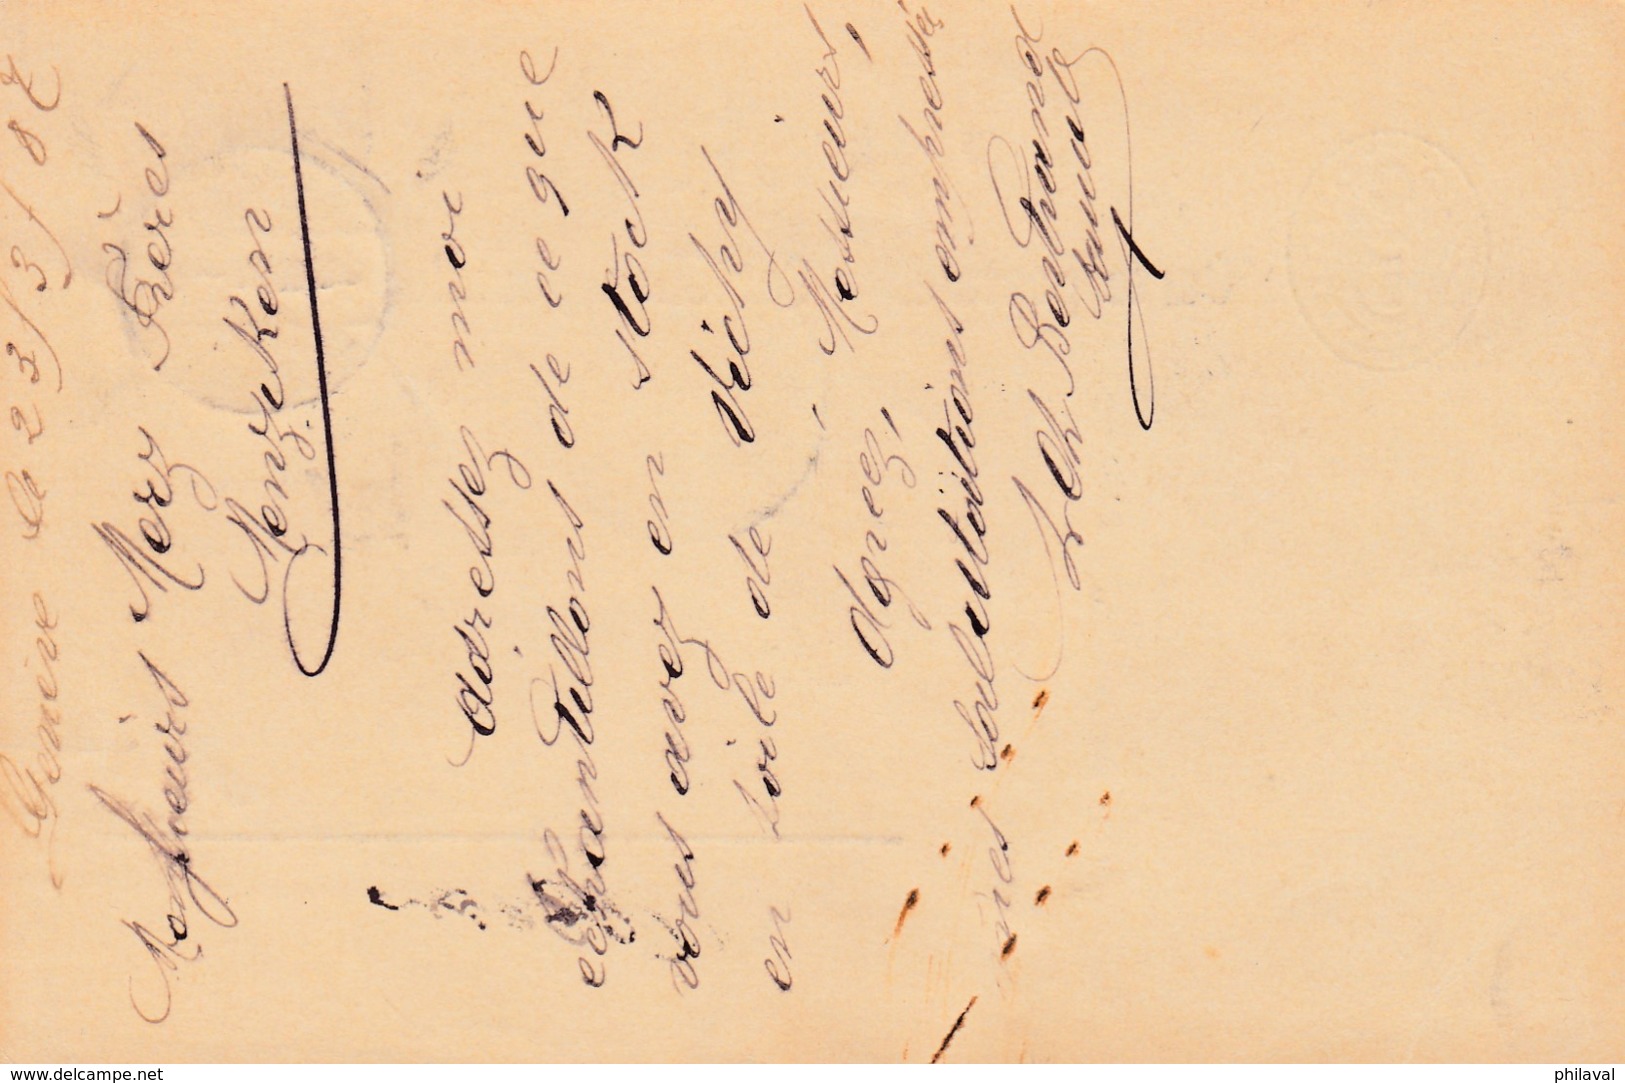 Genève le 23/3/87
Messieurs Merz Frères
Menziken
Adressez moi
echantillons de ce que
vous avez en stock
en toile de Vichy
Agreez, Messieurs,
mes salutations empressées
Bertrand
www.delcampe.net
philaval